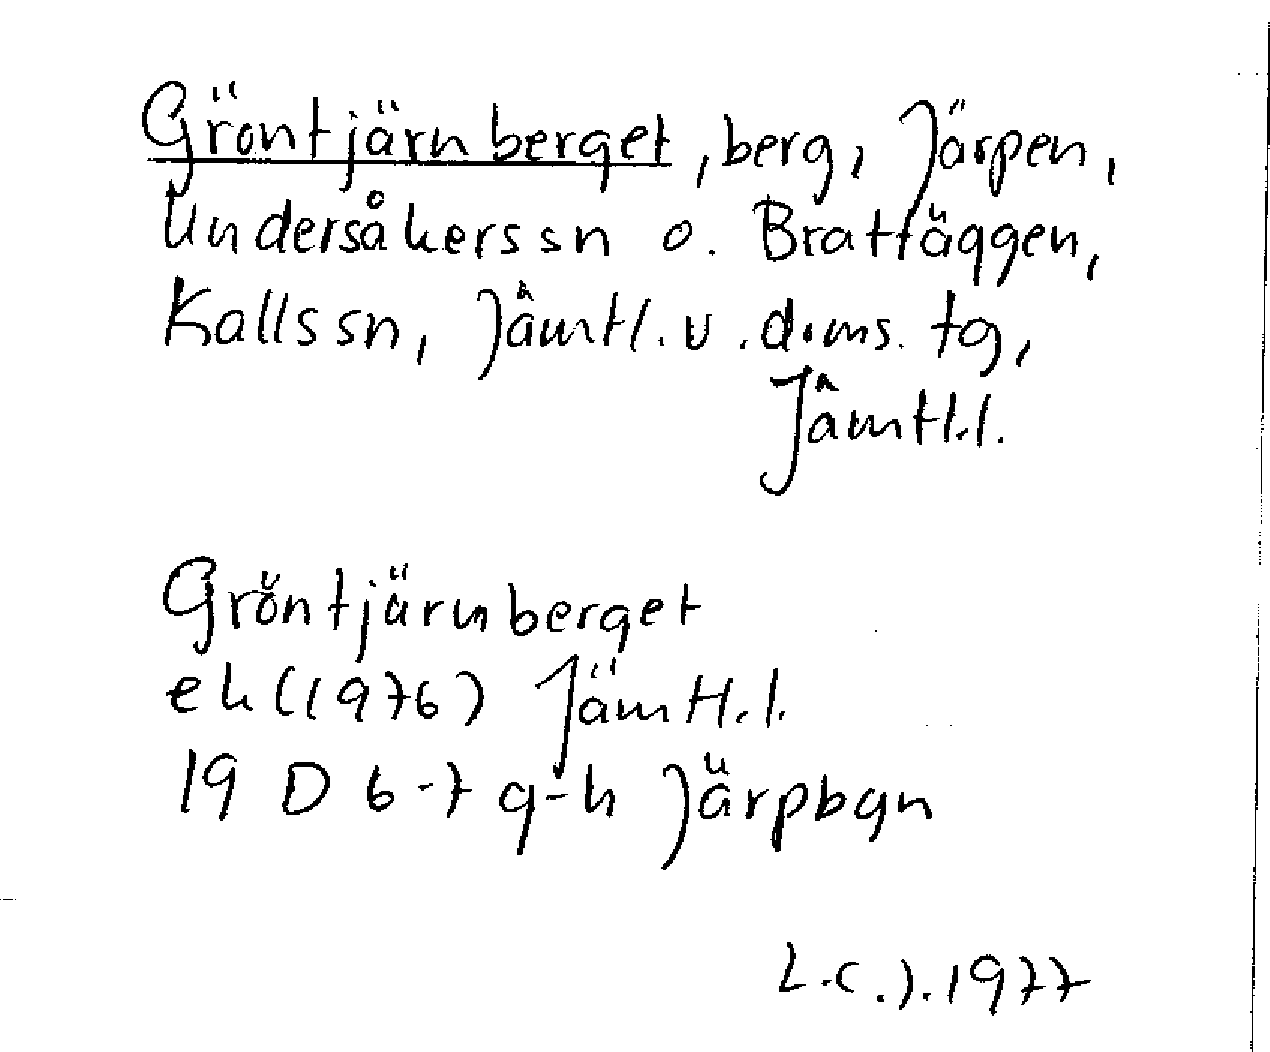 Gröntjärnberget, berg, Järpen,
Undersåkers sn o. Bratfäggen,
Kalls sn, Jämtl. v. doms. tg,
Jämtl. l.
Gröntjärnberget
ek (1976) Jämtl. l.
19 D 6-7 g-h Järpbyn
L.C.J. 1977